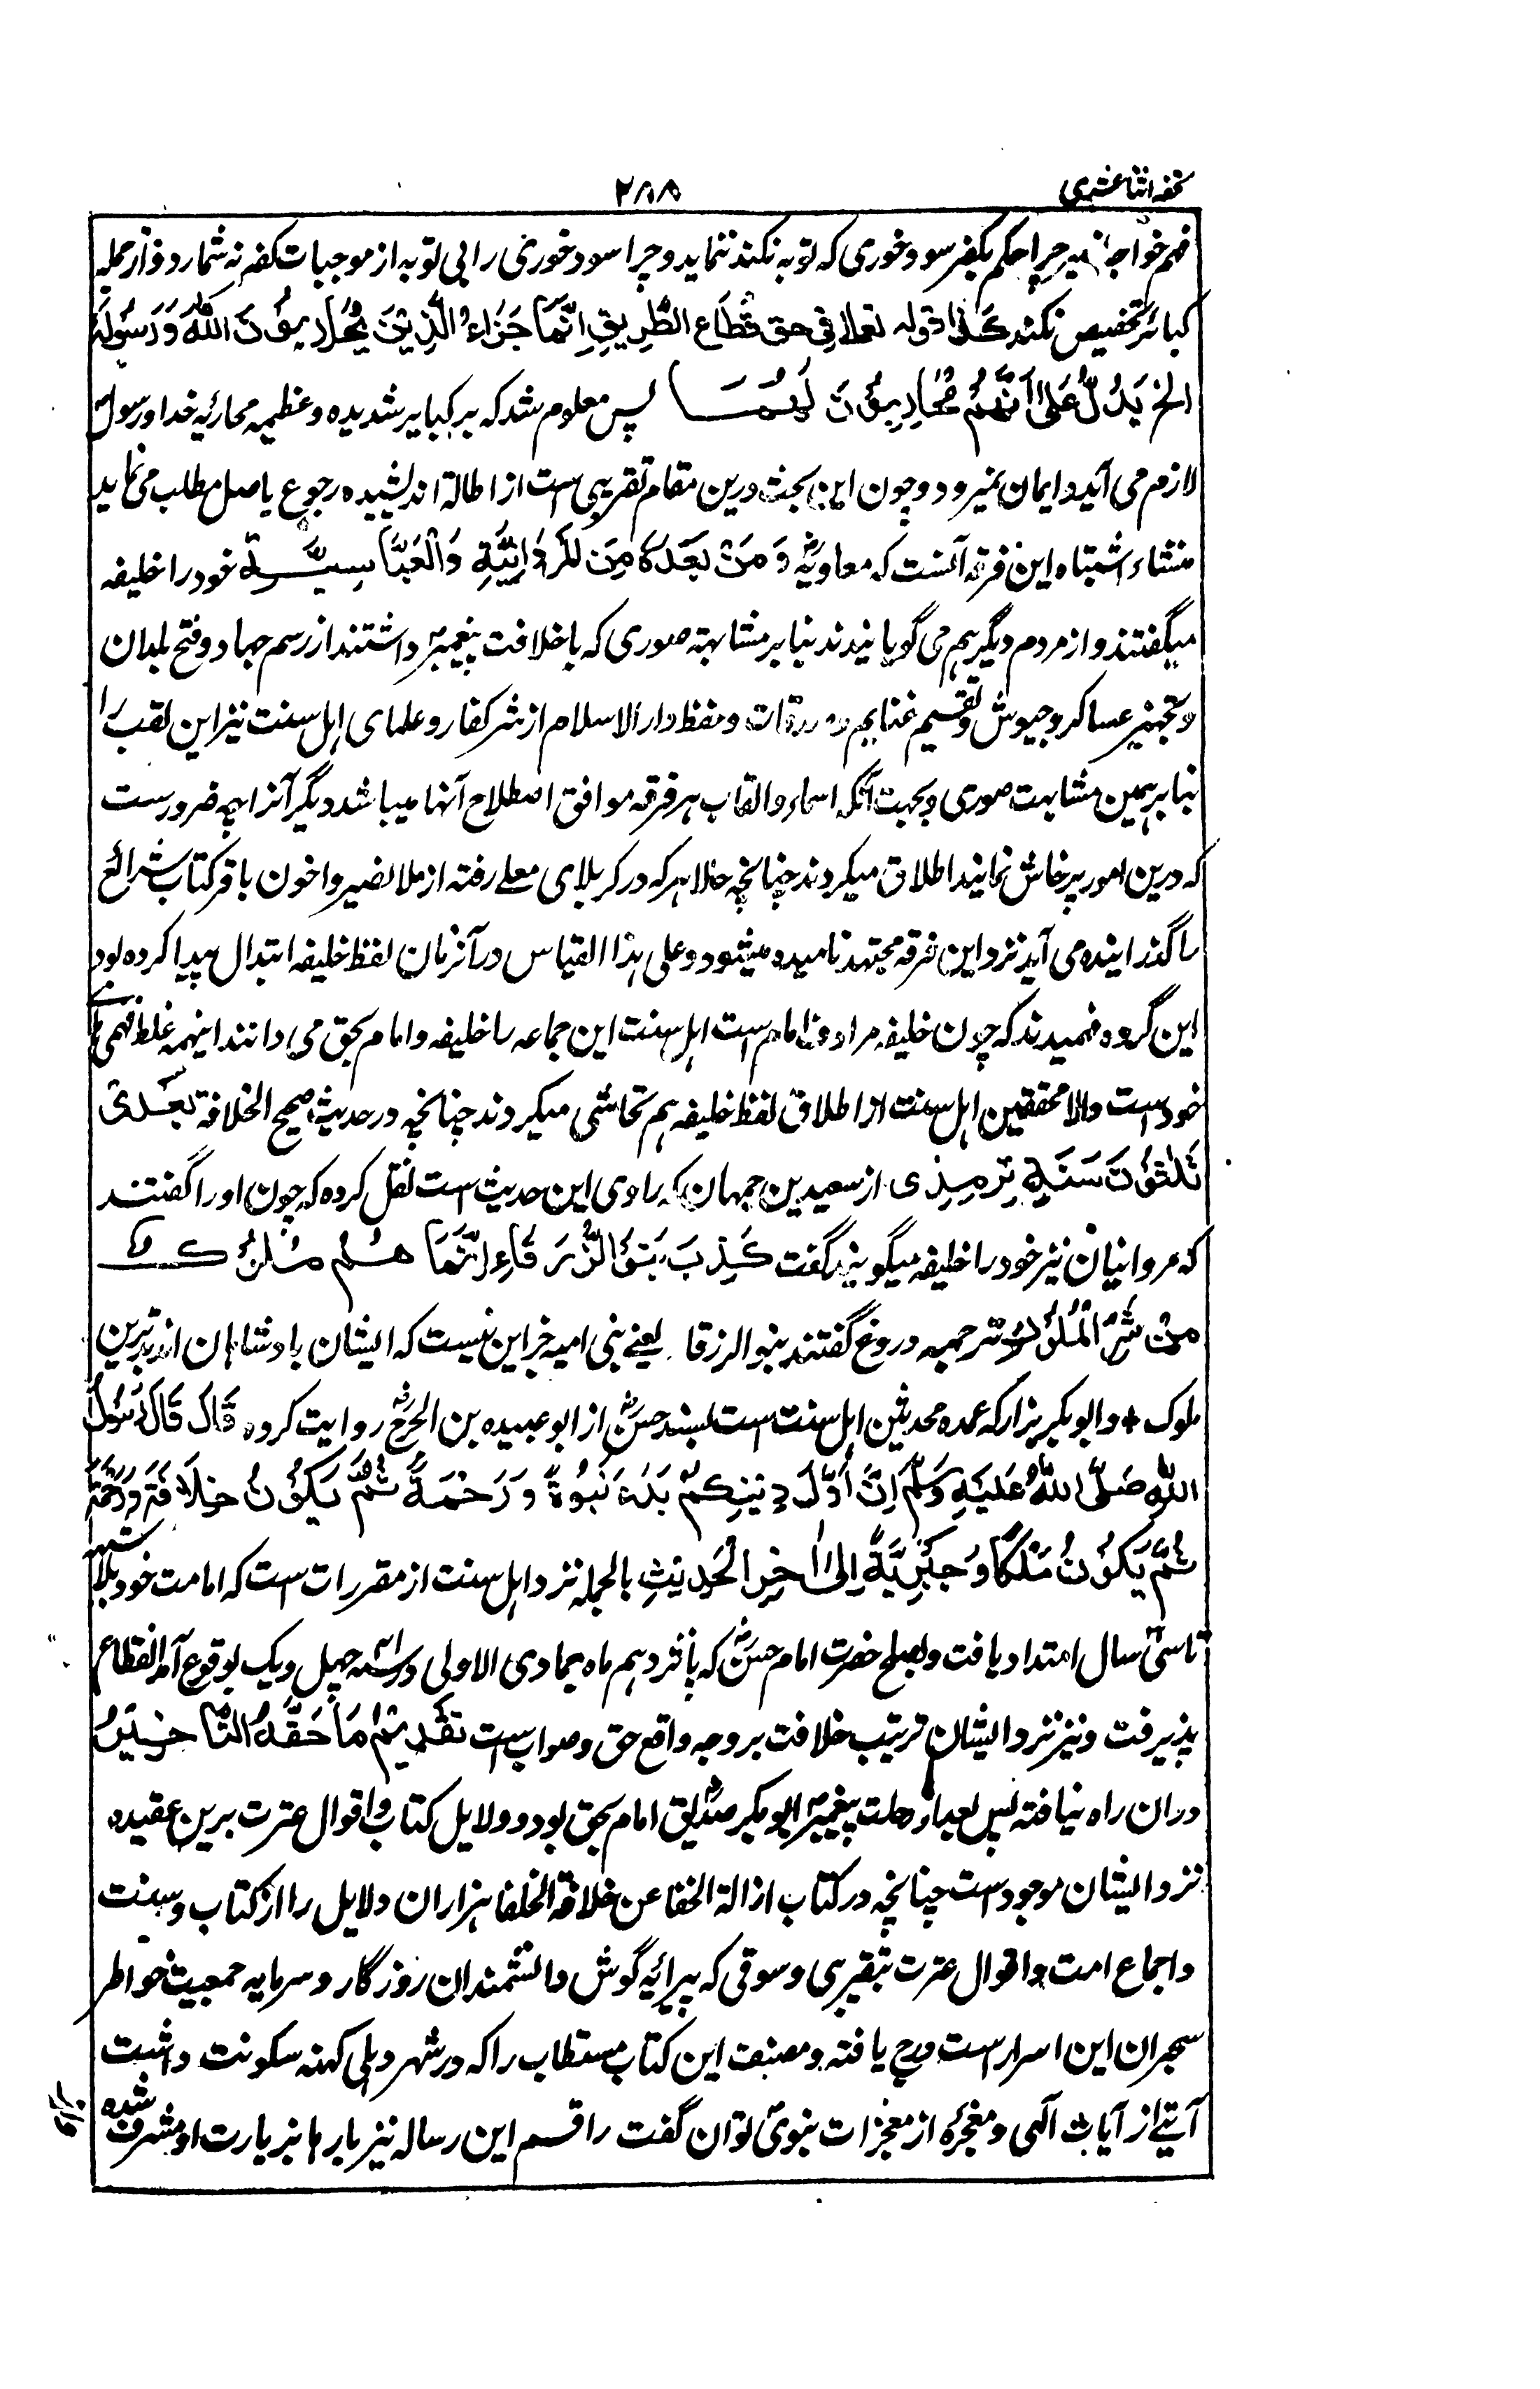 تحفہ اثنا عشری
۲۸۸
فہم خواجہ نصیر چرا حکم بکفر سود خوری کہ توبہ نکند ننماید و چرا سود خوری را بی توبہ از موجبات کفر نہ شمارد و از جملہ
کبائر تخصیص نکند کَذَا قولہ تعالیٰ فِی حق قُطَّاع الطَّرِیقِ اِنَّمَا جَزَاءُ الَّذِیْنَ یُحَارِبُوْنَ اللّٰہَ وَرَسُوْلَہٗ
الخ یَدُلُّ عَلٰی اَنَّہُمْ مُحَارِبُوْنَ لَہُمَا پس معلوم شد کہ بر کبایر شدیدہ و عظیمہ محاربۂ خدا و رسول
لازم می آید و ایمان نمیرود و چون این بحث درین مقام تقریبی است از اطالۃ اندیشیدہ رجوع باصل مطلب می نماید
منشاء اشتباہ این فرقہ آنست کہ معاویہؓ وَ مَنْ بَعْدَہٗ مِنَ المَرْوَانِیَّۃِ وَالْعَبَّاسِیَّۃِ خود را خلیفہ
میگفتند و از مردم دیگر ہم می گویانیدند بنا بر مشابہتہ صوری کہ با خلافت پیغمبرؐ داشتند از رسم جہاد و فتح بلدان
و تجہیز عساکر و جیوش و تقسیم غنایم و صدقات و حفظ دار الاسلام از شر کفار و علمای اہل سنت نیز این لقب را
بنا بر ہمین مشابہت صوری و بجہت آنکہ اسماء و القاب ہر فرقہ موافق اصطلاح آنہا میباشد دیگر آنرا چہ ضرورست
کہ درین امور پرخاش نمایند اطلاق میکردند چنانچہ حالا ہر کہ در کربلای معلے رفتہ از ملا نصیر و اخون باقر کتاب شرائع
را گذرانیدہ می آید نزد این فرقہ مجتہد نامیدہ میشود و علی ہذا القیاس در آنزمان لفظ خلیفہ ابتذال پیدا کردہ بود
این گروہ فہمیدند کہ چون خلیفہ مرادف امام است اہل سنت این جماعہ را خلیفہ و امام بحق می دانند اینہمہ غلط فہمی
خود است والا محققین اہل سنت از اطلاق لفظ خلیفہ ہم تحاشی میکردند چنانچہ در حدیث صحیح الخلافۃ بَعْدِیْ
ثَلٰثُوْنَ سَنَۃٍ تِرْمِذِی از سعید بن جمہان کہ راوی این حدیث است نقل کردہ کہ چون او را گفتند
کہ مروانیان نیز خود را خلیفہ میگویند گفت کَذِبَ بَنُوْ الزَّرْقَاءِ اِنَّمَا ہُمْ مُلُوْکٌ
مِنْ شَرِّ الْمُلُوْکِ ترجمہ دروغ گفتند بنو الزرقا یعنے بنی امیہ جز این نیست کہ ایشان بادشاہان اند از بدترین
ملوک + و ابو بکر بزار کہ عمدہ محدثین اہل سنت است بسند حسن از ابو عبیدہ بن الجراحؓ روایت کردہ قَالَ قَالَ رَسُوْلُ
اللّٰہِ صَلَّی اللّٰہُ عَلَیْہِ وَسَلَّمَ اِنَّ اَوَّلَ دِیْنِکُمْ بَدَءَ نَبُوَّۃً وَ رَحْمَۃً ثُمَّ یَکُوْنُ خِلَافَۃً وَ رَحْمَۃً
ثُمَّ یَکُوْنُ مُلْکًا وَ جَبْرِیَّۃً اِلٰی اٰخِرِ الْحَدِیْثِ بالجملہ نزد اہل سنت از مقررات است کہ امامت خود بلا شبہ
تا سی سال امتداد یافت و بصلح حضرت امام حسنؓ کہ پانزدہم ماہ جمادی الاولی در سنہ چہل و یک بوقوع آمد انقطاع
پذیرفت و نیز نزد ایشان ترتیب خلافت بر وجہ واقع حق و صواب است تَقْدِیْمُ مَا حَقَّہُ التَّاخِیْرُ
دران راہ نیافتہ پس بعد از رحلت پیغمبرؐ ابو بکر صدیقؓ امام بحق بود و دلایل کتاب و اقوال عترت برین عقیدہ
نزد ایشان موجود است چنانچہ در کتاب ازالۃ الخفا عن خلافۃ الخلفا ہزاران دلایل را از کتاب و سنت
و اجماع امت و اقوال عترت بتقریری و سوقی کہ پیرائیہ گوش دانشمندان روزگار و سرمایہ جمعیت خواطر
متبحران این اسرارست درج یافتہ و مصنف این کتاب مستطاب را کہ در شہر دہلی کہنہ سکونت داشت
آیتے از آیات الٰہی و معجزہ از معجزات نبوی توان گفت راقم این رسالہ نیز بارہا بزیارت او مشرف شدہ